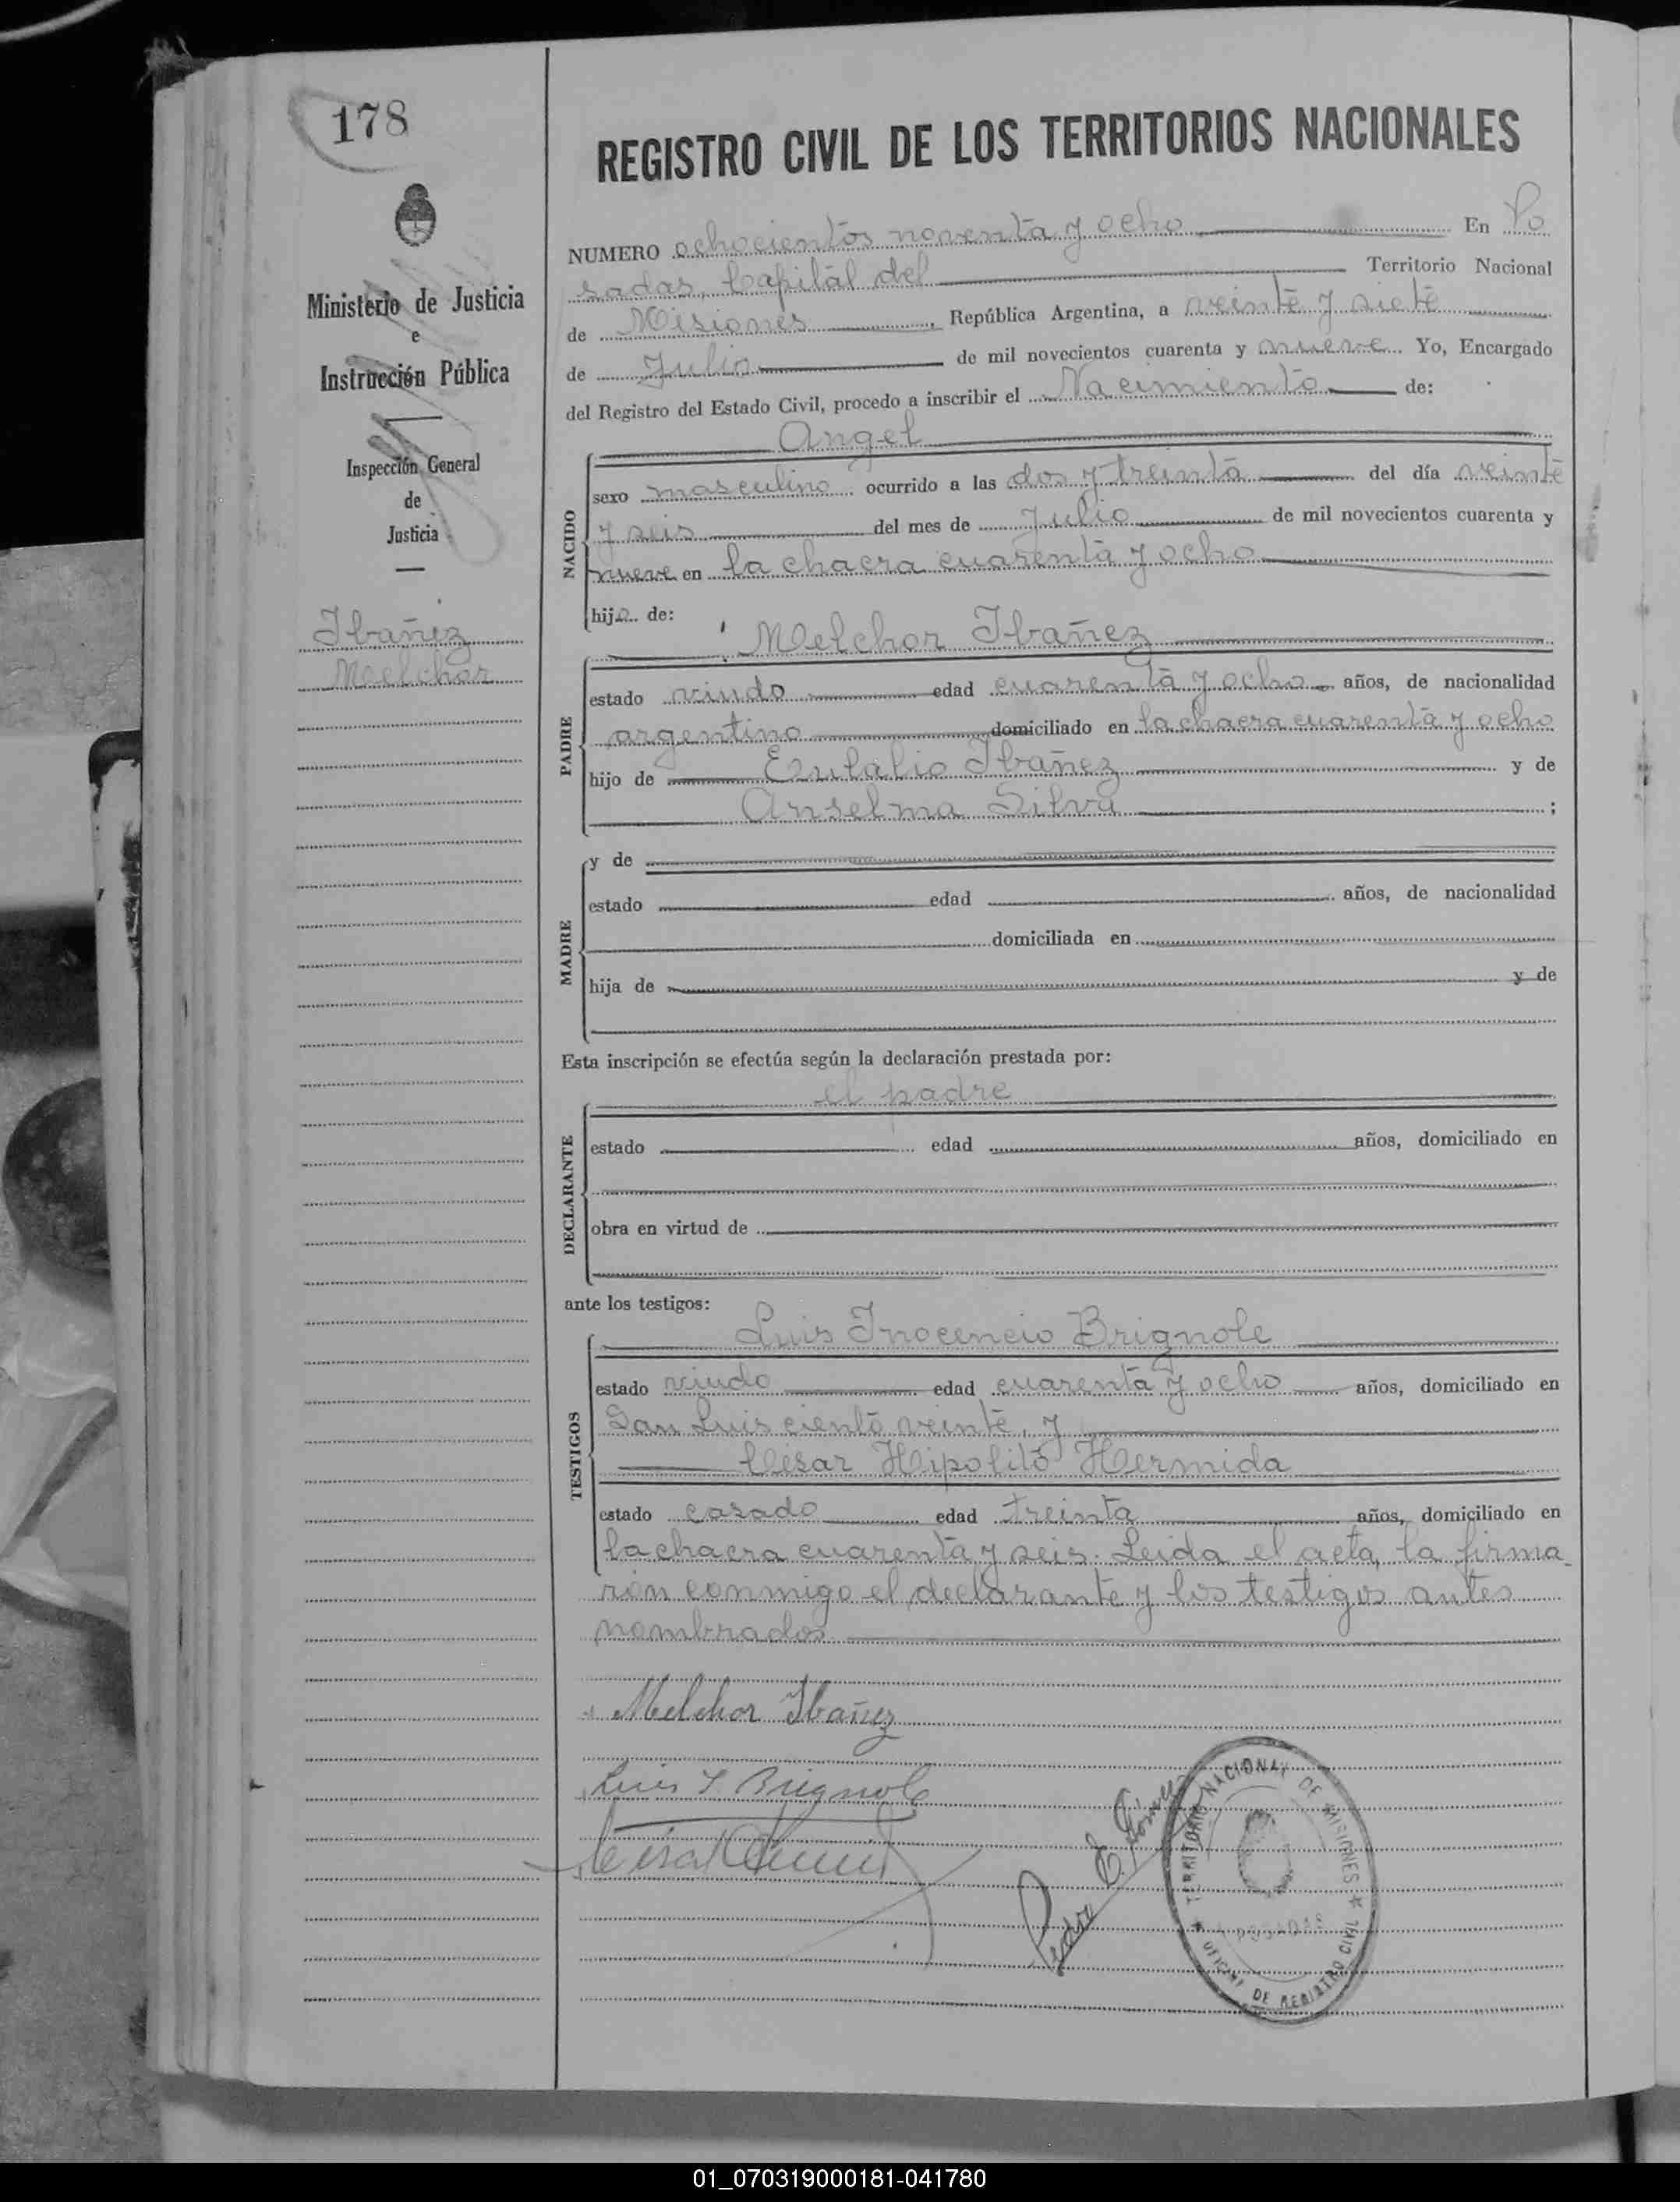 178
REGISTRO CIVIL DE LOS TERRITORIOS NACIONALES
Ministerio de Justicia
e
Instrucción Pública
Inspección General
de
Justicia
Ibañez
Melchor
NUMERO ochocientos noventa y ocho En Po
sadas, Capital del Territorio Nacional
de Misiones, República Argentina, a veinte y siete
de Julio de mil novecientos cuarenta y nueve Yo, Encargado
del Registro del Estado Civil, procedo a inscribir el Nacimiento de:
Angel
NACIDO
sexo masculino ocurrido a las dos y treinta del día veinte
y seis del mes de Julio de mil novecientos cuarenta y
nueve en la chacra cuarenta y ocho
hijo de:
Melchor Ibañez
PADRE
estado viudo edad cuarenta y ocho años, de nacionalidad
argentino domiciliado en la chacra cuarenta y ocho
hijo de Eulalio Ibañez y de
Anselma Silva ;
MADRE
y de
estado edad años, de nacionalidad
domiciliada en
hija de y de
Esta inscripción se efectúa según la declaración prestada por:
el padre
DECLARANTE
estado edad años, domiciliado en
obra en virtud de
ante los testigos:
Luis Inocencio Brignole
TESTIGOS
estado viudo edad cuarenta y ocho años, domiciliado en
San Luis ciento veinte, y
César Hipolito Hermida
estado casado edad treinta años, domiciliado en
la chacra cuarenta y seis. Leida el acta, la firma
ron conmigo el declarante y los testigos antes
nombrados
Melchor Ibañez
Luis I. Brignole
Pedro E. Gómez
TERRITORIO NACIONAL DE MISIONES
POSADAS
OFICINA DE REGISTRO CIVIL
01_070319000181-041780